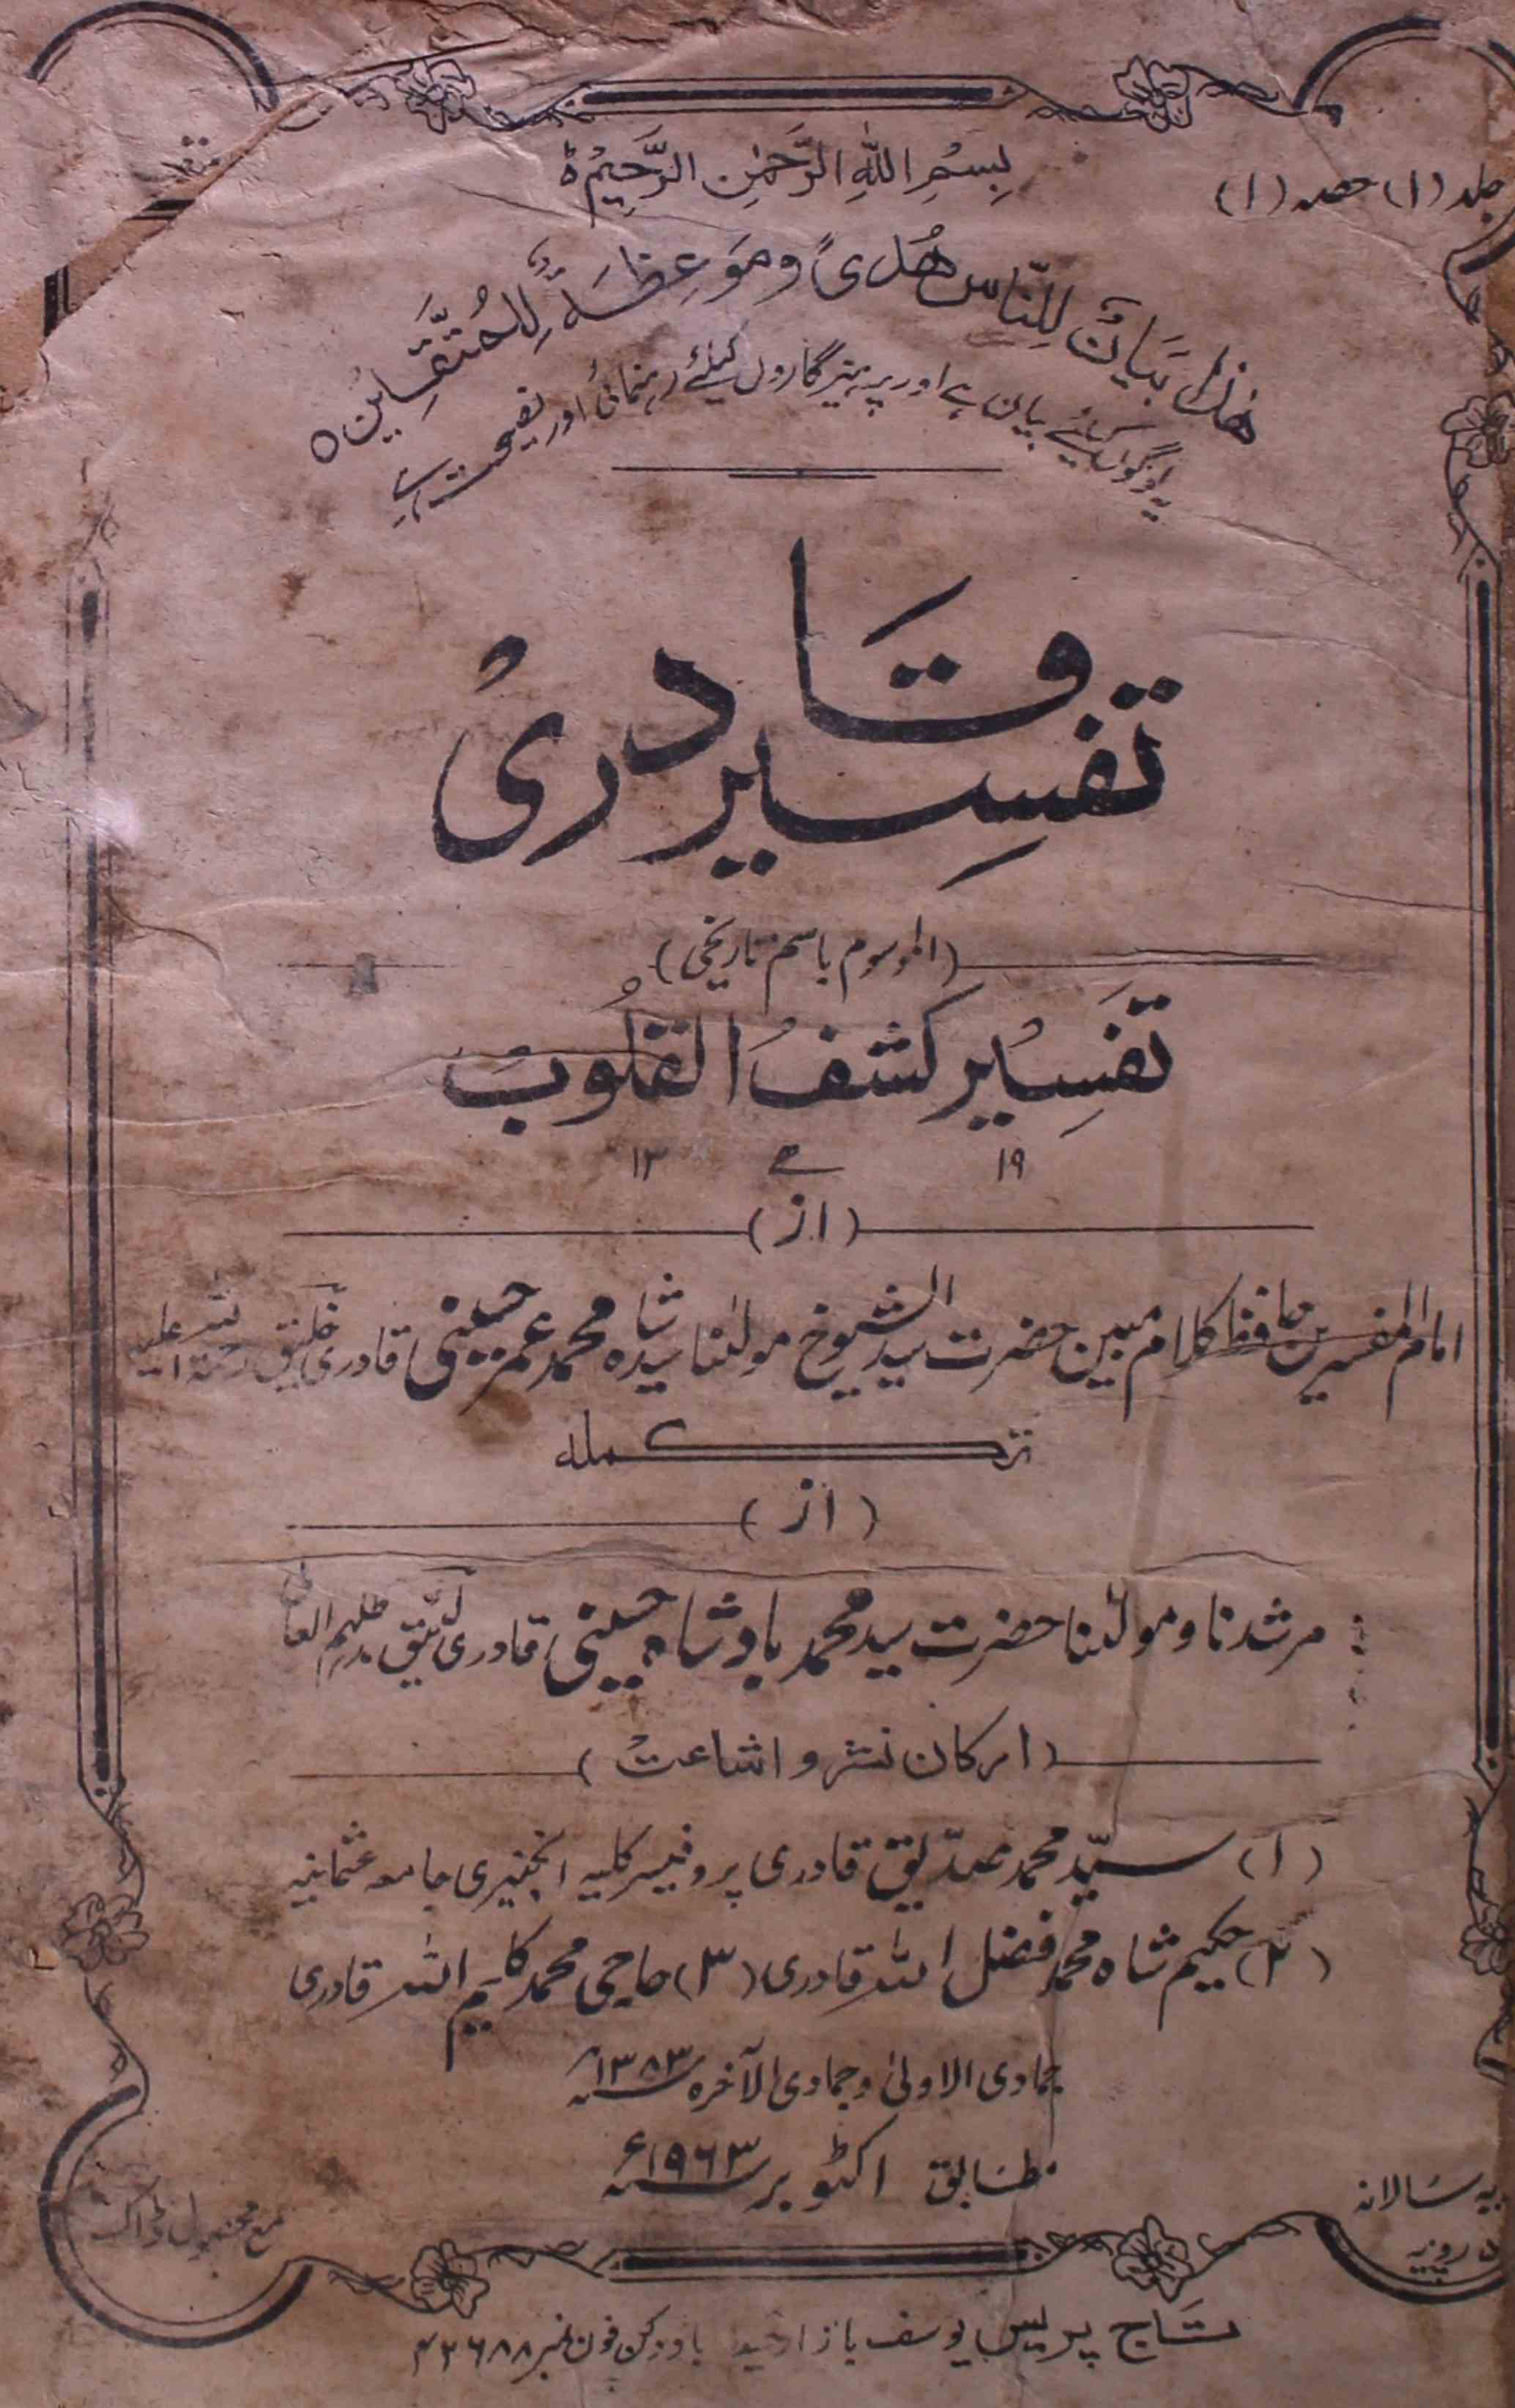 جلد (۱) حصہ (۱)
بِسْمِ اللّٰهِ الرَّحْمٰنِ الرَّحِیْمِ ط
هٰذَا بَیَانٌ لِّلنَّاسِ هُدیً وَّمَوْعِظَةٌ لِّلْمُتَّقِیْنَ ٥
یہ لوگوں کیلئے بیان ہے اور پرہیزگاروں کیلئے رہنمائی اور نصیحت ہے
تفسِیر قَادری
(الموسوم باسم تاریخی)
تفسِیر کشف القلُوب
۱۹ ھ ۱۳
(از)
امام المفسرین حافظ کلام مبین حضرت سید الشیوخ مولٰنا سید شاہ محمد عمر حسینی قادری خلیق رحمۃ اللہ علیہ
تکملہ
(از)
مرشدنا و مولٰنا حضرت سید محمد بادشاہ حسینی قادری لئیق مدظلہم العالی
(ارکان نشر و اشاعت)
(۱) سیّد محمد صدّیق قادری پروفیسر کلیہ انجنیری جامعہ عثمانیہ
(۲) حکیم شاہ محمد فضل اللہ قادری (۳) حاجی محمد کلیم اللہ قادری
جمادی الاولیٰ و جمادی الآخرہ ۱۳۸۳ھ
مطابق اکٹوبر ۱۹۶۳ء
سالانہ
روپیہ
مع محصول ڈاک
تاج پریس یوسف بازار حیدرآباد دکن فون نمبر ۴۲۶۸۸